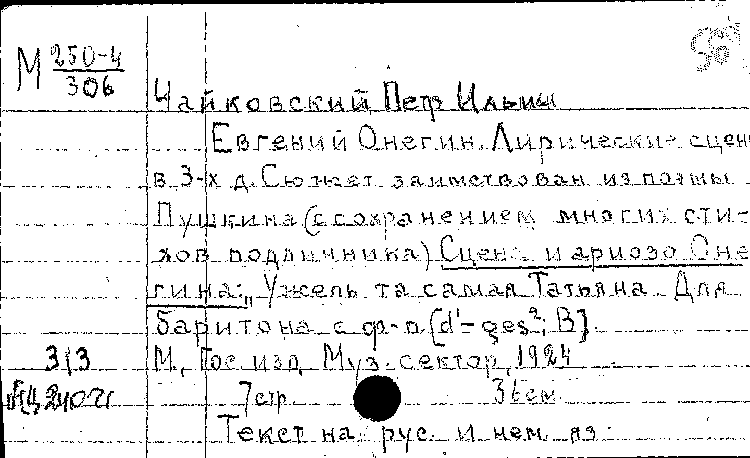 М 250-4
306
Чайковский, Петр Ильич
Евгений Онегин. Лирические сцен
в 3-х д. Сюжет заимствован из поэмы
Пушкина (с сохранением многих сти-
хов подлинника) Сцена и ариозо Оне
гина: „Ужель та самая Татьяна. Для
баритона с ф-п. [d¹-ges²; B].
313 М., Гос. изд. Муз. сектор, 1924
7 стр. 36 см.
Текст на рус. и нем. яз.